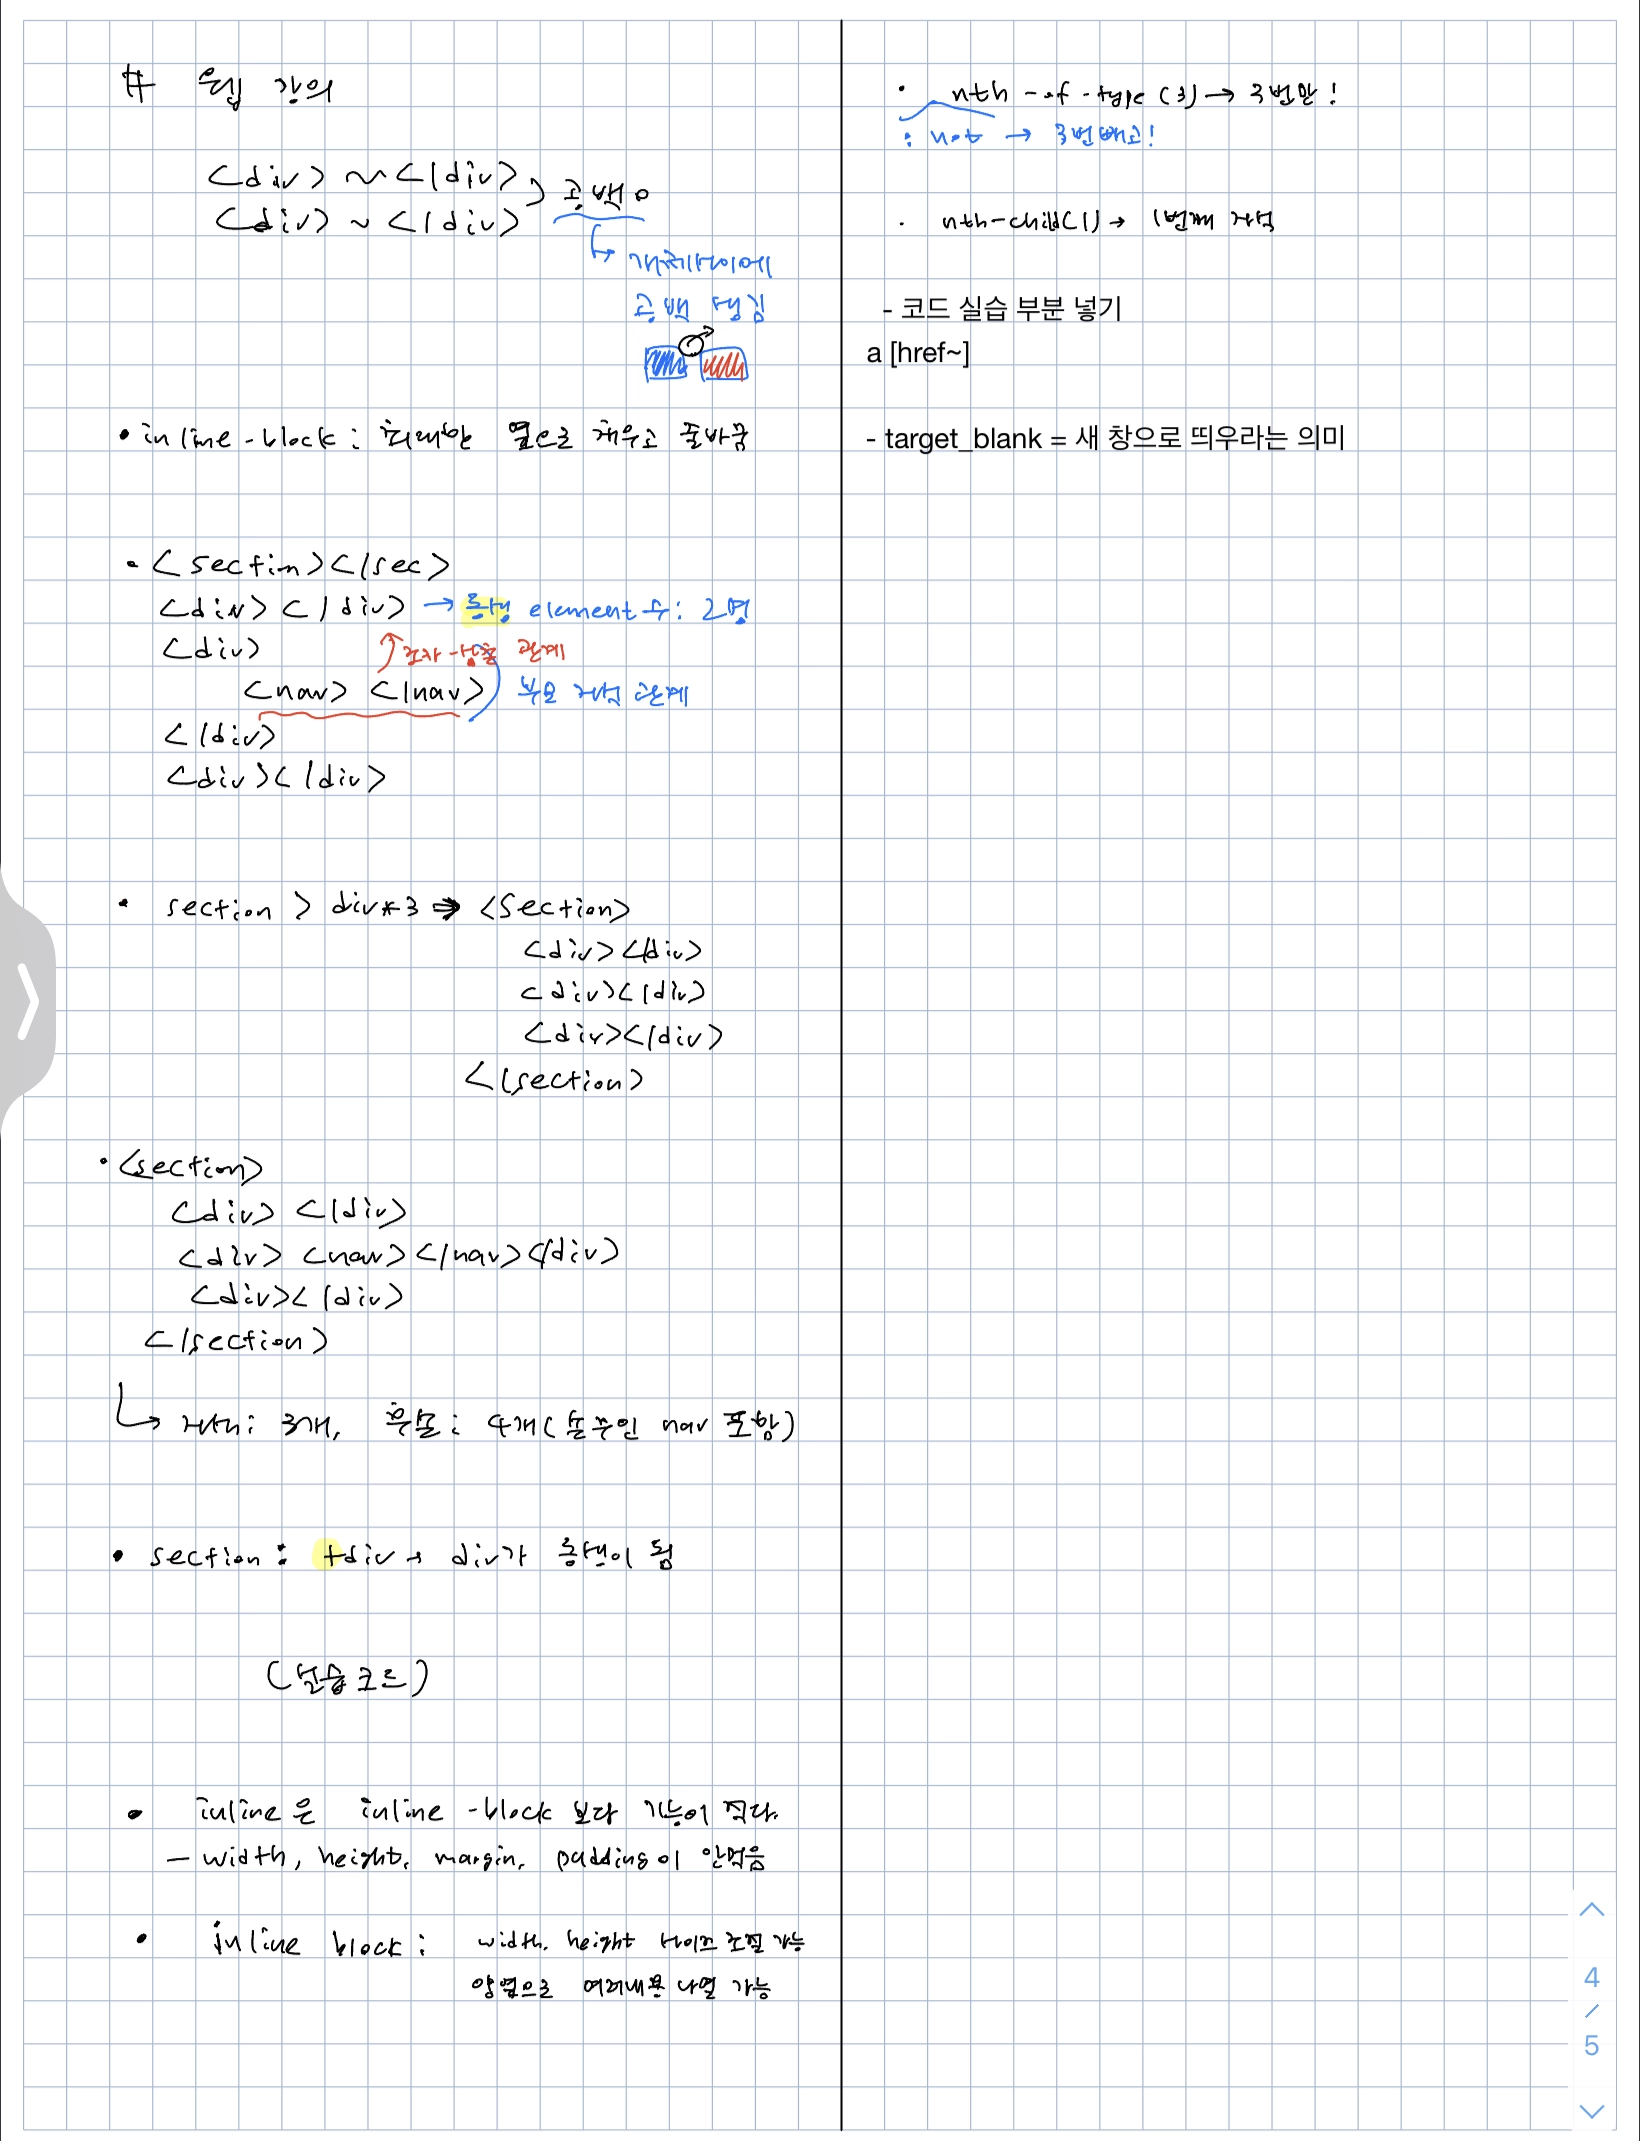 # 웹 강의
<div> ~ </div>
<div> ~ </div> ) 공백 o
↳ 개체사이에
공백 생김
• inline-block : 최대한 옆으로 채우고 줄바꿈
• <section></sec>
<div></div> → 동생 element 수: 2명
<div> 조카-삼촌 관계
<nav> </nav> 부모 자식 관계
</div>
<div></div>
• section > div*3 ⇒ <section>
<div></div>
<div></div>
<div></div>
</section>
• <section>
<div> </div>
<div> <nav></nav></div>
<div></div>
</section>
↳ 자식: 3개, 후손: 4개(손주인 nav 포함)
• section: +div → div가 동생이 됨
(실습코드)
• inline은 inline-block 보다 기능이 적다.
- width, height, margin, padding이 안먹음
• inline block : width, height 사이즈 조절 가능
양옆으로 여러내용 나열 가능
• nth-of-type(3) → 3번만!
:not → 3번빼고!
· nth-child(1) → 1번째 자식
- 코드 실습 부분 넣기
a [href~]
- target_blank = 새 창으로 띄우라는 의미
4
/
5